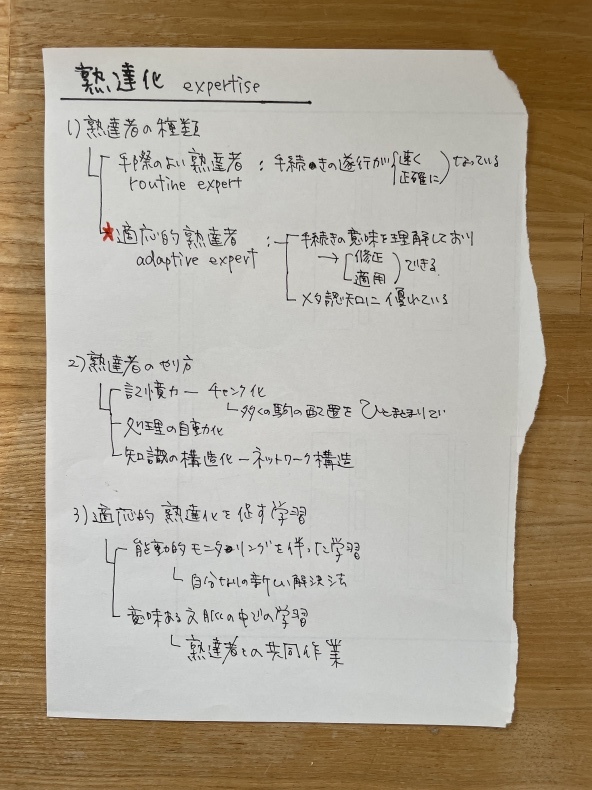 熟達化 expertise
1) 熟達者の種類
手際のよい熟達者 : 手続きの遂行が 速く 正確に なっている
routine expert
★適応的熟達者 : 手続きの意味を理解しており
adaptive expert → 修正 適用 できる
メタ認知に優れている
2) 熟達者のやり方
記憶力 ー チャンク化
多くの駒の配置をひとまとまりで
処理の自動化
知識の構造化 ー ネットワーク構造
3) 適応的熟達化を促す学習
能動的モニタリングを伴った学習
自分なりの新しい解決法
意味ある文脈の中での学習
熟達者との共同作業